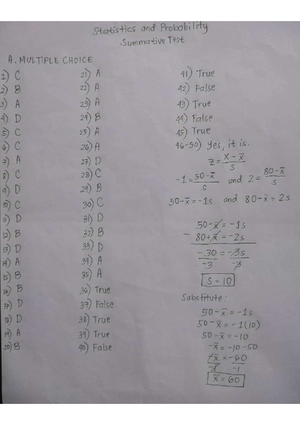 Statistics and Probability
Summative Test
A. MULTIPLE CHOICE
1) C
2) B
3) A
4) D
5) C
6) C
7) A
8) C
9) D
10) C
11) D
12) B
13) B
14) A
15) B
16) B
17) D
18) D
19) A
20) B
21) A
22) A
23) A
24) B
25) A
26) A
27) D
28) C
29) B
30) C
31) D
32) B
33) D
34) A
35) A
36) True
37) False
38) True
39) True
40) False
41) True
42) False
43) True
44) False
45) True
46-50) Yes, it is.
z = X - x̄ / s
-1 = 50-x̄ / s and 2 = 80-x̄ / s
50-x̄ = -1s and 80-x̄ = 2s
50-x̄ = -1s
- 80+x̄ = -2s
-30 = -3s
-3 -3
s = 10
Substitute:
50-x̄ = -1s
50-x̄ = -1(10)
50-x̄ = -10
-x̄ = -10-50
-x̄ = -60
-1 -1
x̄ = 60